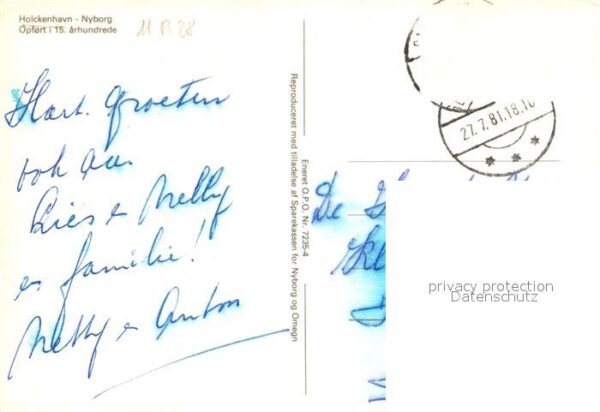 Holckenhavn - Nyborg
Opført i 15. århundrede
11 R 28
Hart. groeten
ook aan
Lies e Nelly
en familie!
Nelly e Anton
Reproduceret med tilladelse af Sparekassen for Nyborg og Omegn
Eneret O.P.O. Nr. 7235-4
27.7.81.18.10
De
privacy protection
Datenschutz